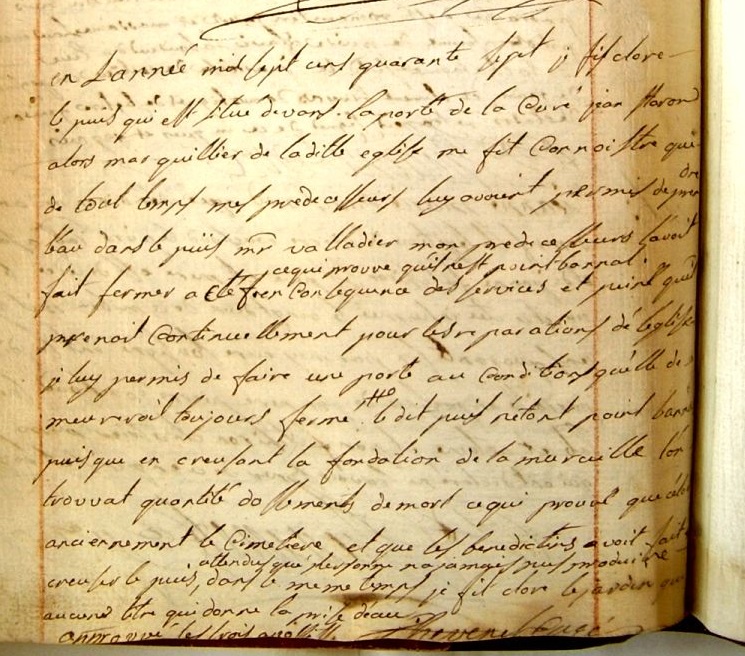 en Lannéé mil sept cens quarante sept j fis clore
le puis qui est situé devans la porte de la Curé jean
alors marguillier de laditte eglise me fit Connoistre que
de tout temps mes predecesseurs luy avoient permis de pren
dre
leau dans le puis mr valladier mon predecesseurs lavoit
ce qui prouve qu'il nest point bannal
fait fermer a Clef en Consequence des services et peine quil
prenoit Continuellement pour les reparations dé leglise
je luy permis de faire une porte au Condition quelle de
meureroit toujours fermé le dit puis n'etant point
puis que en creusant la fondation de la muraille lon
trouvat quantité dossements de mort ce qui prouve que
anciennement le Cimetiere et que les benedictins avoit fait
attendus que personne na jamais pus produire
creuser le puis, dans le meme temps je fis clore le jardin
aucuns titre qui donne la prise deau
approuvé les trois